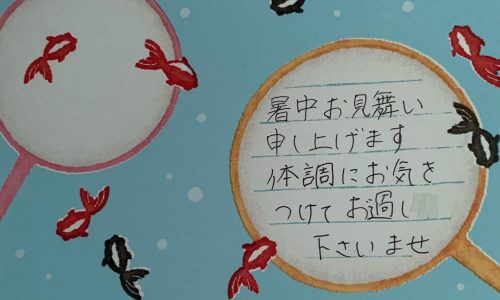 暑中お見舞い
申し上げます
体調にお気を
つけてお過し
下さいませ